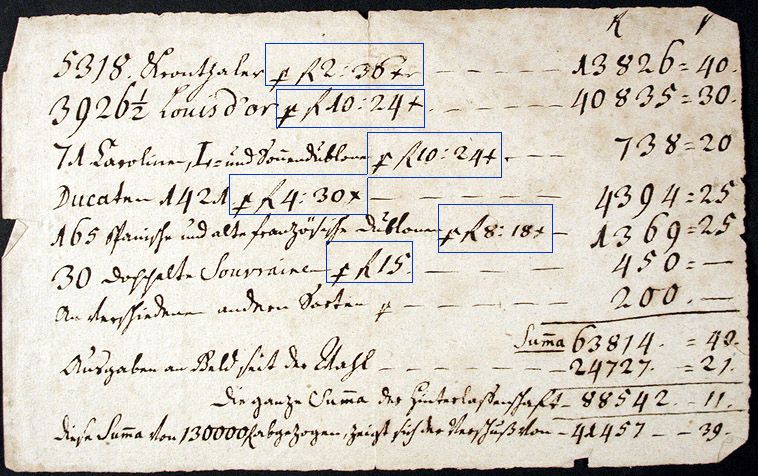 fl x
5318. Kronthaler p fl 2:36 xr — — — 13826 = 40.
3926½ Louis d'or p fl 10:24 x. — — — 40835 = 30.
71 Carolinen, L- und Sonnendublonen p fl 10:24 x. — — 738 = 20
Ducaten 1421 p fl 4:30 x — — — — 4394 = 25
165 Spanische und alte französische Dublonen p fl 8:18 x — 1369 = 25
30 doppelte Souvrainen p fl 15. — — — 450 = —
An verschiedenen andern Sorten p — — — 200. —
Summa 63814. = 40.
Ausgaben an Geld seit der Wahl — — — — 24727. = 21.
Die ganze Summa der Hinterlassenschaft — 88542. — 11.
diese Summa von 130000 fl abgezogen, zeigt sich der Verschuß von — 41457 — 39.